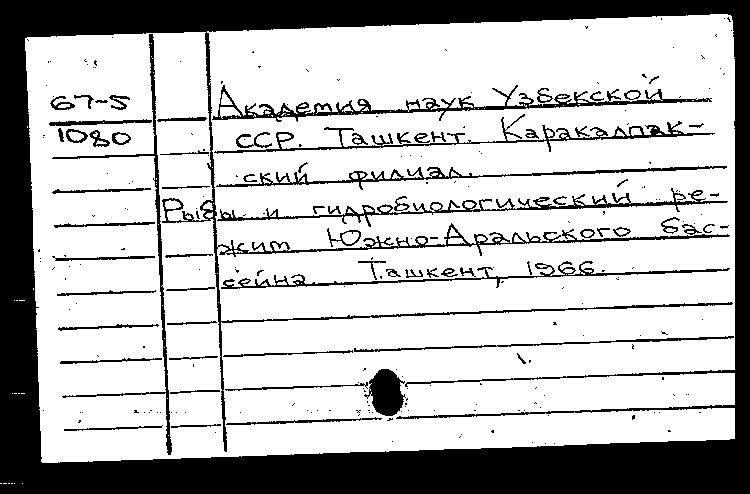 67-5 Академия наук Узбекской
1080 ССР. Ташкент. Каракалпак-
ский филиал.
Рыбы и гидробиологический ре-
жим Южно-Аральского бас-
сейна. Ташкент, 1966.